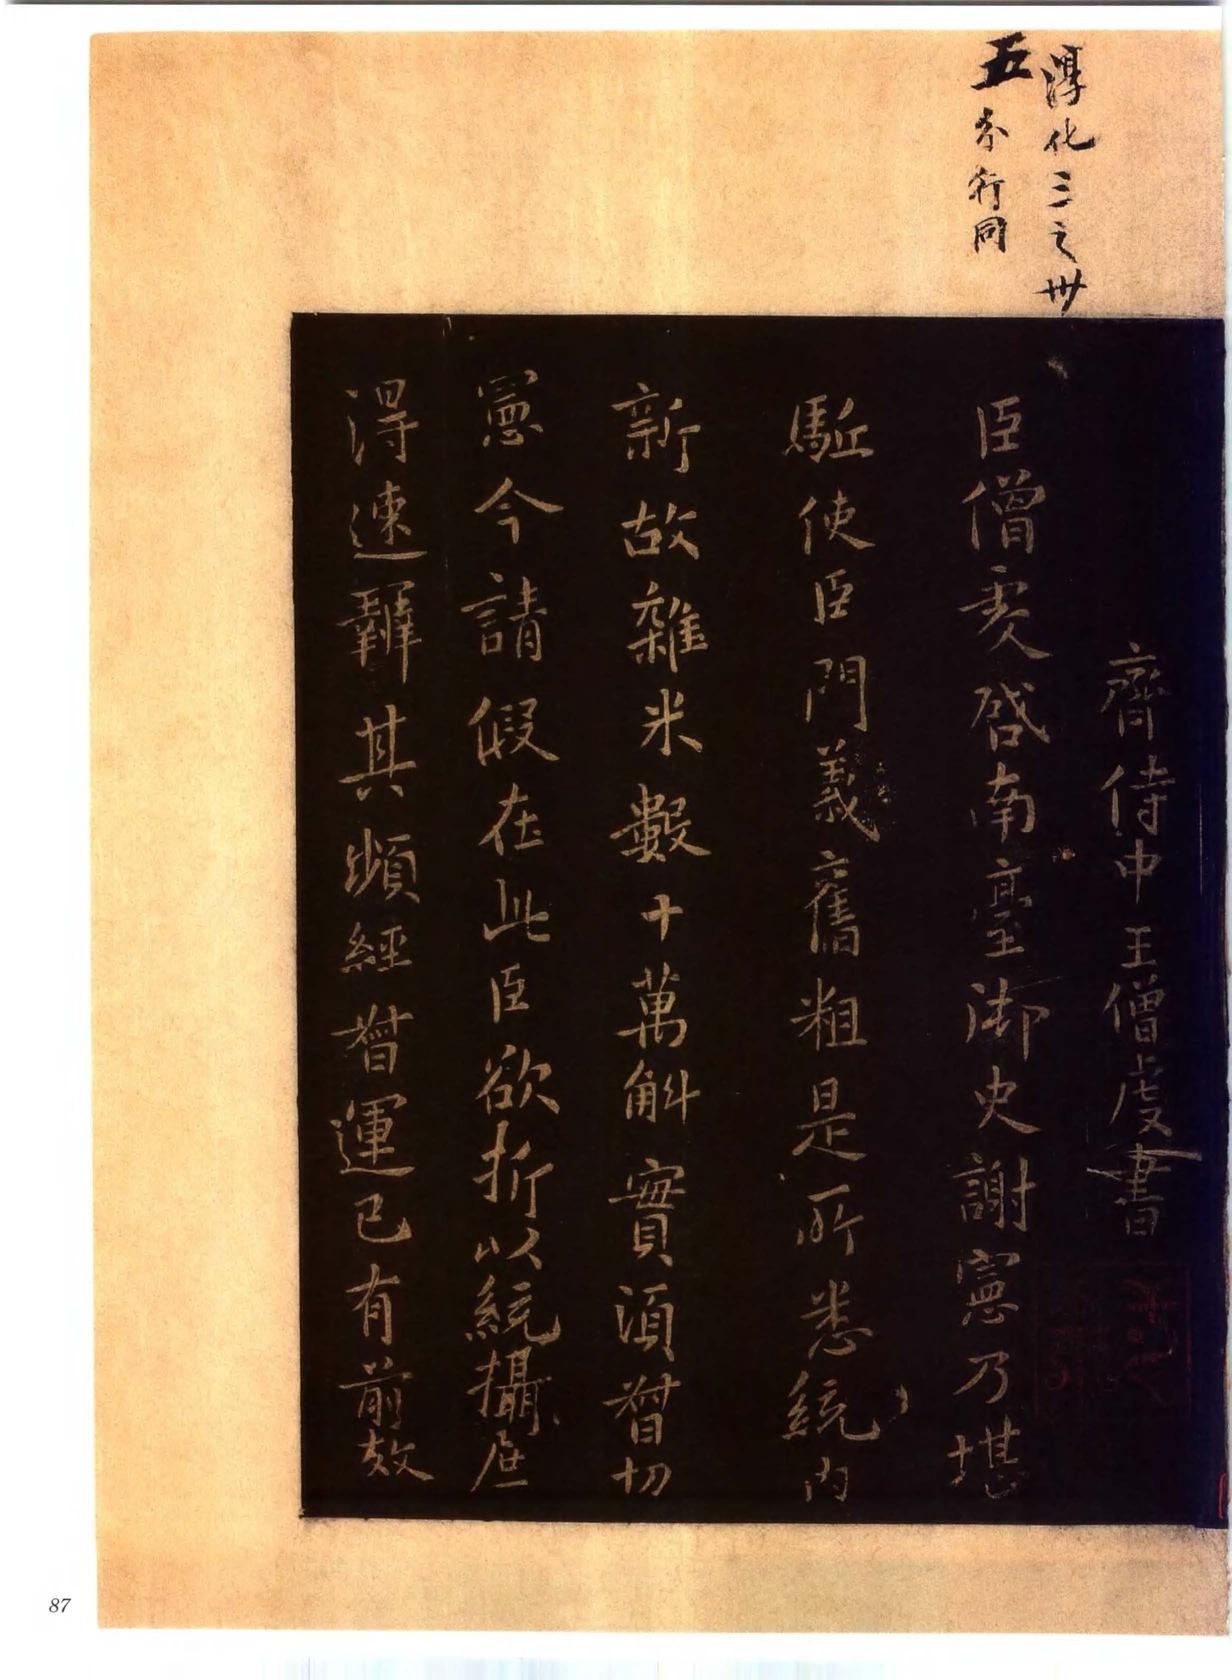 淳化三之卅
五分行同
齊侍中王僧虔書
臣僧虔啓南臺御史謝憲乃堪
驅使臣門義舊粗是所悉統内
新故雜米數十萬斛實須督切
憲今請假在此臣欲折以統攝庶
得速辦其頻經督運已有前效
87